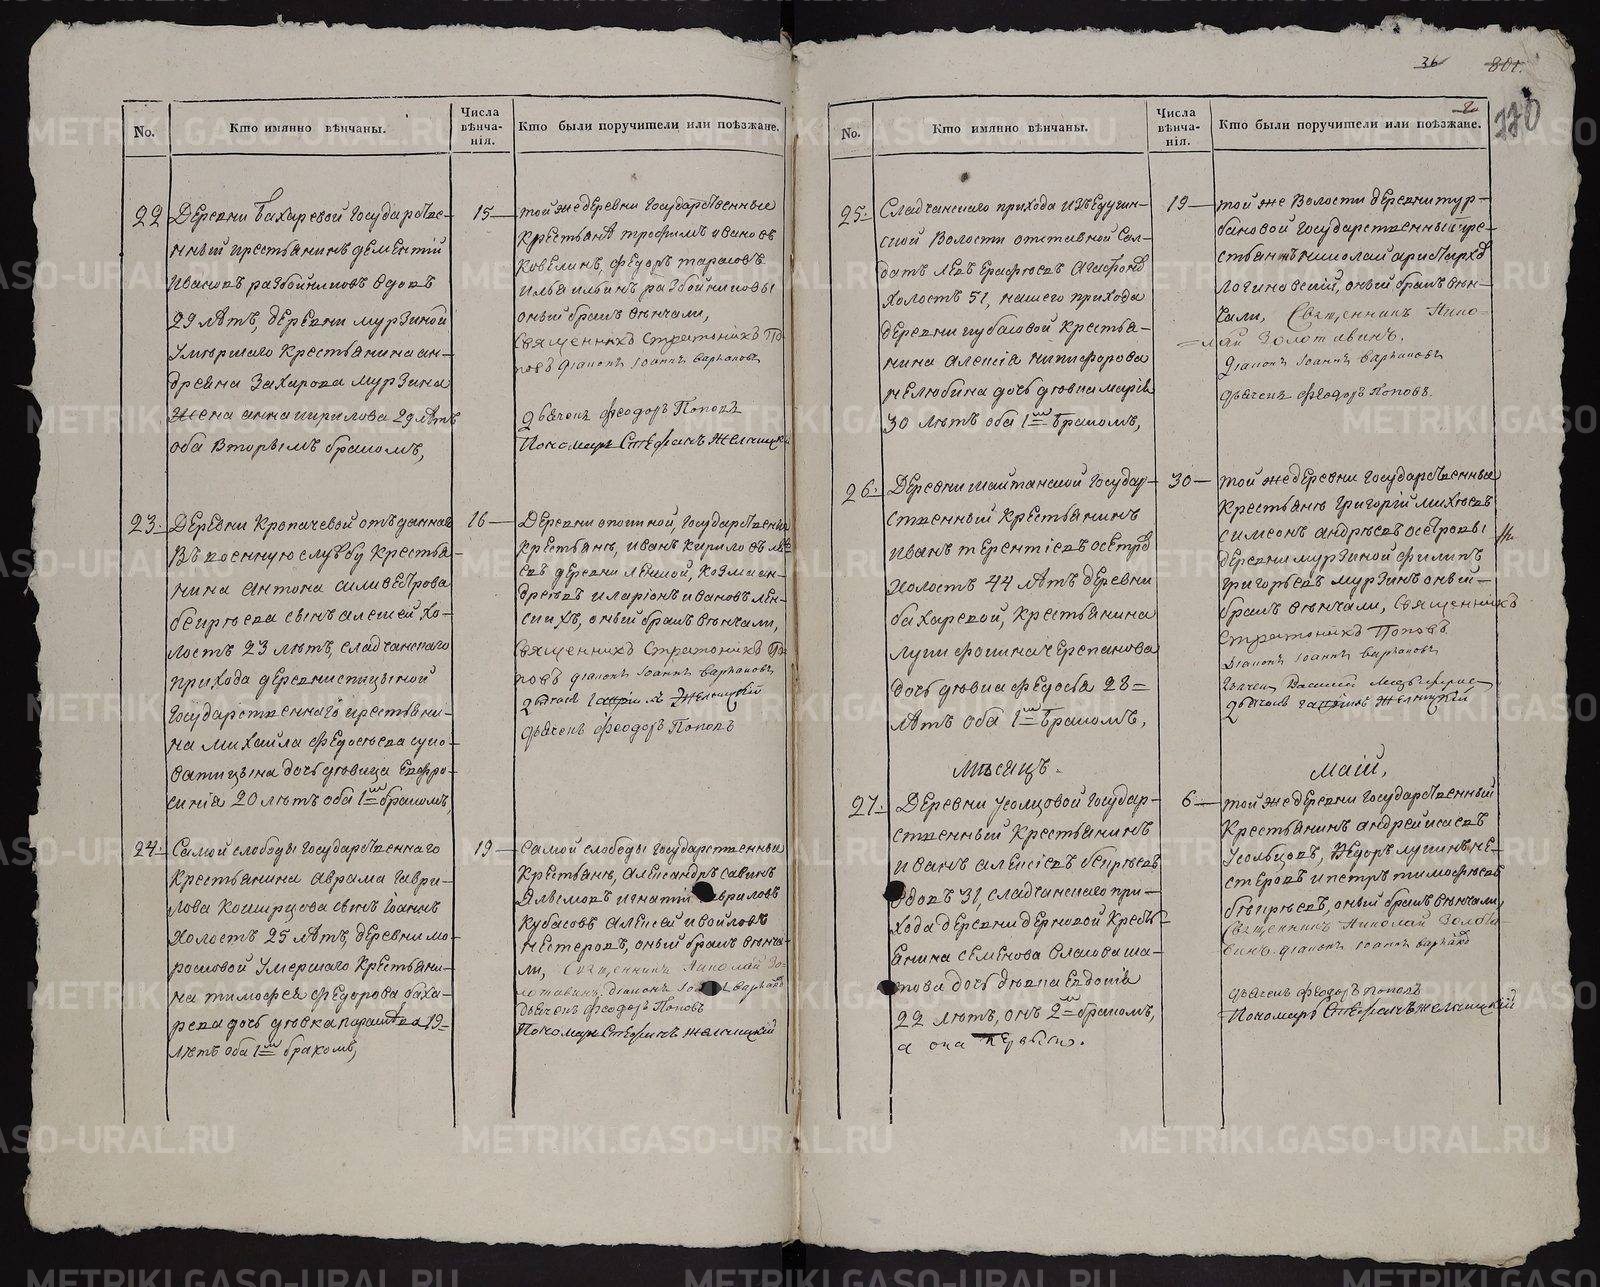 36 801.
170
No. Кто имянно вѣнчаны. Числа вѣнча-нія. Кто были поручители или поѣзжане.
22 Деревни Бахаревой Государстве-
нный крестьянинъ Дементій
Ивановъ разбойниковъ вдовъ
29 лѣтъ, деревни Мурзиной
умершаго крестьянина ан-
дреяна Захарова Мурзина
жена анна кирилова 29 лѣтъ
оба вторымъ бракомъ,
15
той же деревни Государственные
крестьяна трофимъ ивановъ
Ковелинъ, федоръ тарасовъ
илья ильинъ разбойниковы
оный бракъ вѣнчали,
Священникъ Стратоникъ По-
повъ Діаконъ Іоаннъ Варѣаковъ
Дьячекъ Феодоръ Поповъ
Пономарь Стефанъ Желницкій
23. Деревни Кропачевой отъданнаго
въ военную службу крестья-
нина антона силивестрова
бекрѣева сынъ алексей хо-
лостъ 23 лѣтъ, сладчанскаго
прихода деревни спицыной
Государственнаго крестьяни-
на михаила федосѣева суко-
ватицына дочь дѣвица Евфро-
синія 20 лѣтъ оба 1мъ бракомъ,
16
Деревни опокиной, Государственныя
крестьянѣ, иванъ Кириловъ
евъ деревни ленской, козма ан-
дреевъ иларіонъ ивановъ лен-
скихъ, оный бракъ вѣнчали,
Священникъ Стратоникъ По-
повъ діаконъ Іоаннъ Варѣаковъ
Дьячекъ Желницкій
Дьячекъ Феодоръ Поповъ
24. Самой слободы Государственнаго
Крестьянина аврама гаври-
лова Коширцова сынъ Іоаннъ
Холостъ 25 лѣтъ, деревни мо-
роковой умершаго крестьяни-
на тимофея федорова баха-
рева дочь дѣвка парасковья 19-
лѣтъ оба 1мъ бракомъ,
19
Самой слободы Государственныя
Крестьянѣ, Александръ савинъ
игнатій Гавриловъ
Кубасовъ Алексей
Нестеровъ, оный бракъ вѣнча-
ли, Священникъ Николай Зо-
лотавинъ, Діаконъ Іоаннъ Варѣаковъ
Дьячекъ Феодоръ Поповъ
Пономарь Стефанъ Желницкій
No. Кто имянно вѣнчаны. Числа вѣнча-нія. Кто были поручители или поѣзжане.
25. Сладчанскаго прихода
ской Волости отставной Сол-
датъ левъ Ерафѣевъ Агафоновъ
холостъ 51, нашего прихода
деревни кубасовой крестья-
нина алексія никифорова
нелюбина дочь дѣвка марія
30 лѣтъ оба 1мъ бракомъ,
19
той же Волости деревни тур-
бановой Государственный кре-
стьянинъ николай аристарховъ
логиновскій, оный бракъ вѣн-
чали, Священникъ Нико-
лай Золотавинъ.
Діаконъ Іоаннъ Варѣаковъ
Дьячекъ Феодоръ Поповъ.
26. Деревни шайтанской Государ-
ственный крестьянинъ
иванъ терентіевъ осетровъ
холостъ 44 лѣтъ деревни
бахарской, крестьянина
луки фокина черепанова
дочь дѣвка федосья 28=
лѣтъ оба 1мъ бракомъ,
30
той же деревни Государственныя
крестьянѣ григорій михѣевъ
симеонъ андрѣевъ осетровы
деревни мурзиной филипъ
григорьевъ мурзинъ оный
бракъ вѣнчали, Священникъ
Стратоникъ Поповъ
Діаконъ Іоаннъ Варѣаковъ
Дьячекъ Желницкій
Мѣсяцъ.
Маій,
27. Деревни усолцовой Государ-
ственный крестьянинъ
иванъ алексіевъ бекрѣевъ
вдовъ 31, сладчанскаго при-
хода деревни дерновой крест-
янина семенова
дочь дѣвка Евдокія
22 лѣтъ, онъ 2мъ бракомъ,
а она первымъ.
6
той же деревни Государственный
крестьянинъ андрей исаевъ
усольцовъ, Федоръ лукинъ не-
стеровъ и петръ тимофѣевъ
бекрѣевъ, оный бракъ вѣнчали,
Священникъ Николай Золота
винъ. діаконъ Іоаннъ Варѣаковъ
Дьячекъ Феодоръ Поповъ
Пономарь Стефанъ Желницкій
METRIKI.GASO-URAL.RU